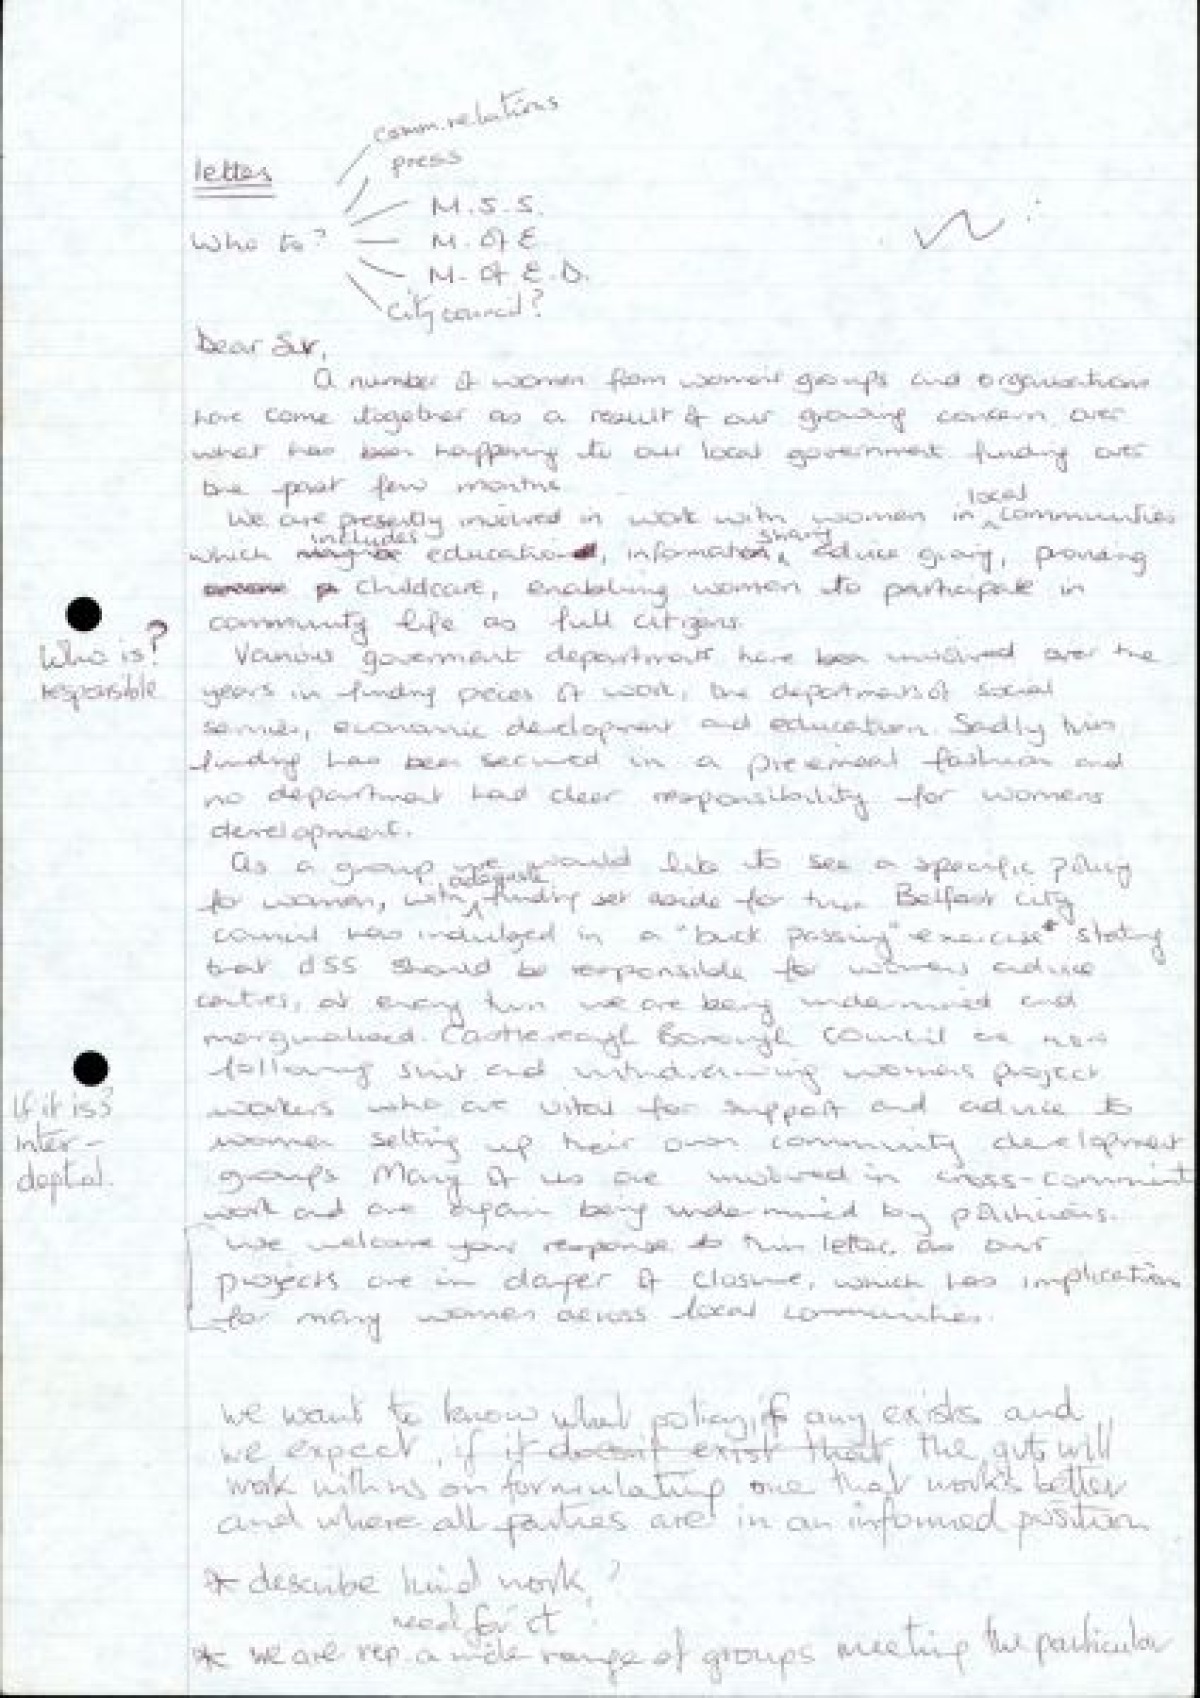 comm. relations
press
letter
M.S.S.
Who to?
M. of E.
M. of E.D.
City council?
Dear Sir,
A number of women from women's groups and organisations
have come together as a result of our growing concern over
what has been happening to our local government funding over
the past few months.
local
We are presently involved in work with women in communities
includes
sharing
which education, information, advice giving, providing
childcare, enabling women to participate in
community life as full citizens.
Who is?
responsible
Various government departments have been involved over the
years in funding pieces of work, the departments of social
services, economic development and education. Sadly this
funding has been secured in a piecemeal fashion and
no department had clear responsibility for womens
development.
As a group we would like to see a specific policy
adequate
for women, with funding set aside for this. Belfast city
council has indulged in a "buck passing" exercise stating
that DSS should be responsible for womens advice
centres, at every turn we are being undermined and
marginalised. Castlereagh Borough Council are now
following suit and withdrawing womens project
If it is?
inter-
deptal.
workers who are vital for support and advice to
women setting up their own community development
groups. Many of us are involved in cross-community
work and are again being undermined by politicians.
We welcome your response to this letter as our
projects are in danger of closure, which has implication
for many women across local communities.
We want to know what policy, if any exists and
we expect, if it doesn't exist that the gvt will
work with us on formulating one that works better
and where all parties are in an informed position
* describe kind work?
need for it
* we are rep. a wide range of groups meeting the particular